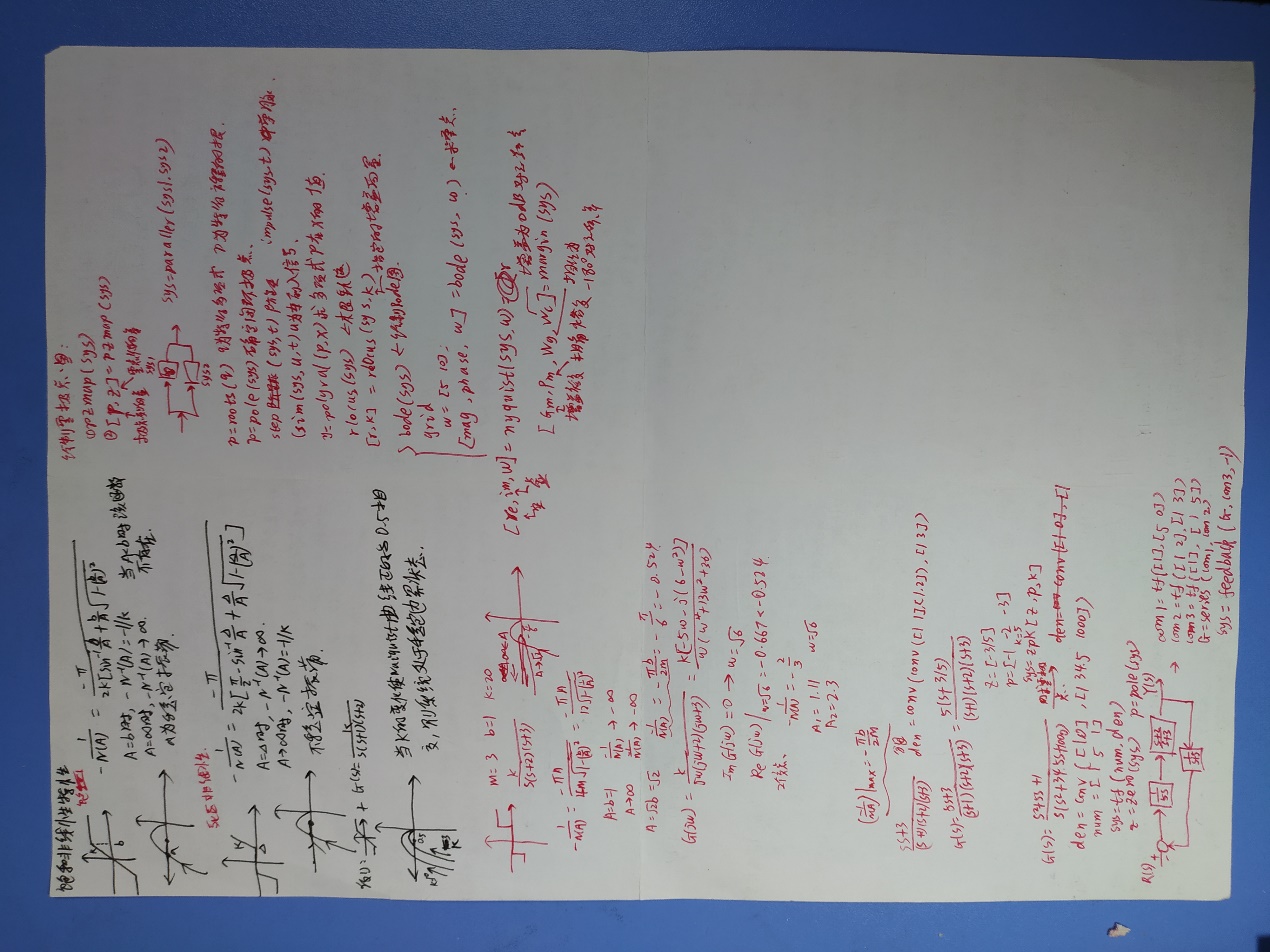 饱和非线性特性
k
b
-1/N(A) = -π/(2k[sin⁻¹ b/A + b/A √(1-(b/A)²)])
A=b时, -N⁻¹(A)=-1/k 当A<b时该函数
A=∞时, -N⁻¹(A)→∞. 不存在.
a为稳定振荡
死区非线性
k
Δ
-1/N(A) = -π/(2k[π/2-sin⁻¹ Δ/A + Δ/A √(1-(Δ/A)²)])
A=Δ时, -N⁻¹(A)→∞.
A→∞时, -N⁻¹(A)=-1/k
不稳定振荡.
+ G(s)=k/(s(s+1)(s+2))
当K的变化使Nyquist曲线 0.5相
交,则系统处于稳定边界状态.
M=3 b=1 k=20
k/(s(s+2)(s+3))
A→√2
-1/N(A) = -πA/(4M√(1-(b/A)²)) = -πA/(12√(1-(1/A)²))
A=b=1 -1/N(A) → -∞
A→∞ -1/N(A) → -∞
A=√2b=√2 -1/N(A) = -πb/2M = -π/6 = -0.524
G(jw) = k/(jw(jw+2)(jw+3)) = k[-5w-j(6-w²)]/(w(w⁴+13w²+36))
Im G(jw)=0 → w=√6
Re G(jw)|w=√6 = -0.667<-0.524
2个交点. -1/N(A) = -2/3
A₁=1.11 w=√6
A₂=2.3
(-1/N(A))|max = -πb/2M
5s+3/((s+1)(s+2)(s+3)) den=conv(conv([1 1],[1.2]),[1 3])
G(s)=5s+3/((s+1)(s+2)(s+3)) = 5(s+3/5)/((s+1)(s+2)(s+3))
z=[-3/5]
p=[-1 -2 -3]
k=5
sys=zpk[z,p,k]
G(s)=s²+5s+1/(s(s²+34.5s+1000)) 求零极点. den= conv([1 0],[1
den=conv([1 0],[1 34.5 1000])
num=[1 5 1]
sys=tf(num,den)
z=zero(sys) p=pole(sys)
R(s) + - 1/5s s+2/s+3 Y(s)
1/s+5
com1=tf([1],[5 0])
com2=tf([1 2],[1 3])
com3=tf([1],[1 5])
G=series(com1,com2)
sys=feedback(G,com3,-1)
绘制零极点图:
①pzmap(sys)
②[p,z]=pzmap(sys)
极点列向量 零点列向量
sys1
sys2
sys=paraller(sys1.sys2)
p=roots(q) q为特征多项式 p为特征方程的根.
p=pole(sys)确定闭环极点.
step (sys,t) 阶跃 impulse(sys,t) 脉冲.
lsim(sys,u,t)u为输入信号.
y=polyval(p,x)求多项式P在X的值.
rlocus(sys) ←根轨迹
[r,k]=rlocus(sys,k)
指定的增益向量.
bode(sys)←绘制Bode图.
grid
w=[5 10];
[mag,phase,w]=bode(sys,w)
[re,im,w]=nyquist(sys,w)
实 虚
增益为0dB对应频率
[Gm,Pm,Wg,Wc]=margin(sys)
增益裕度 相角裕度 相位为
-180°对应频率